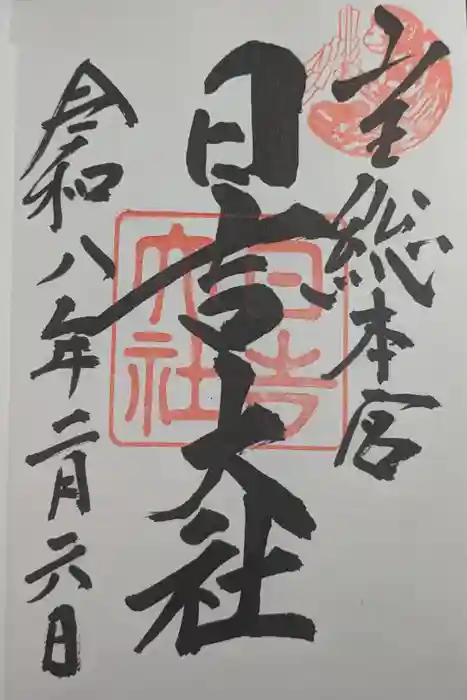 山王総本宮
日吉大社
令和八年二月六日
日吉
大社